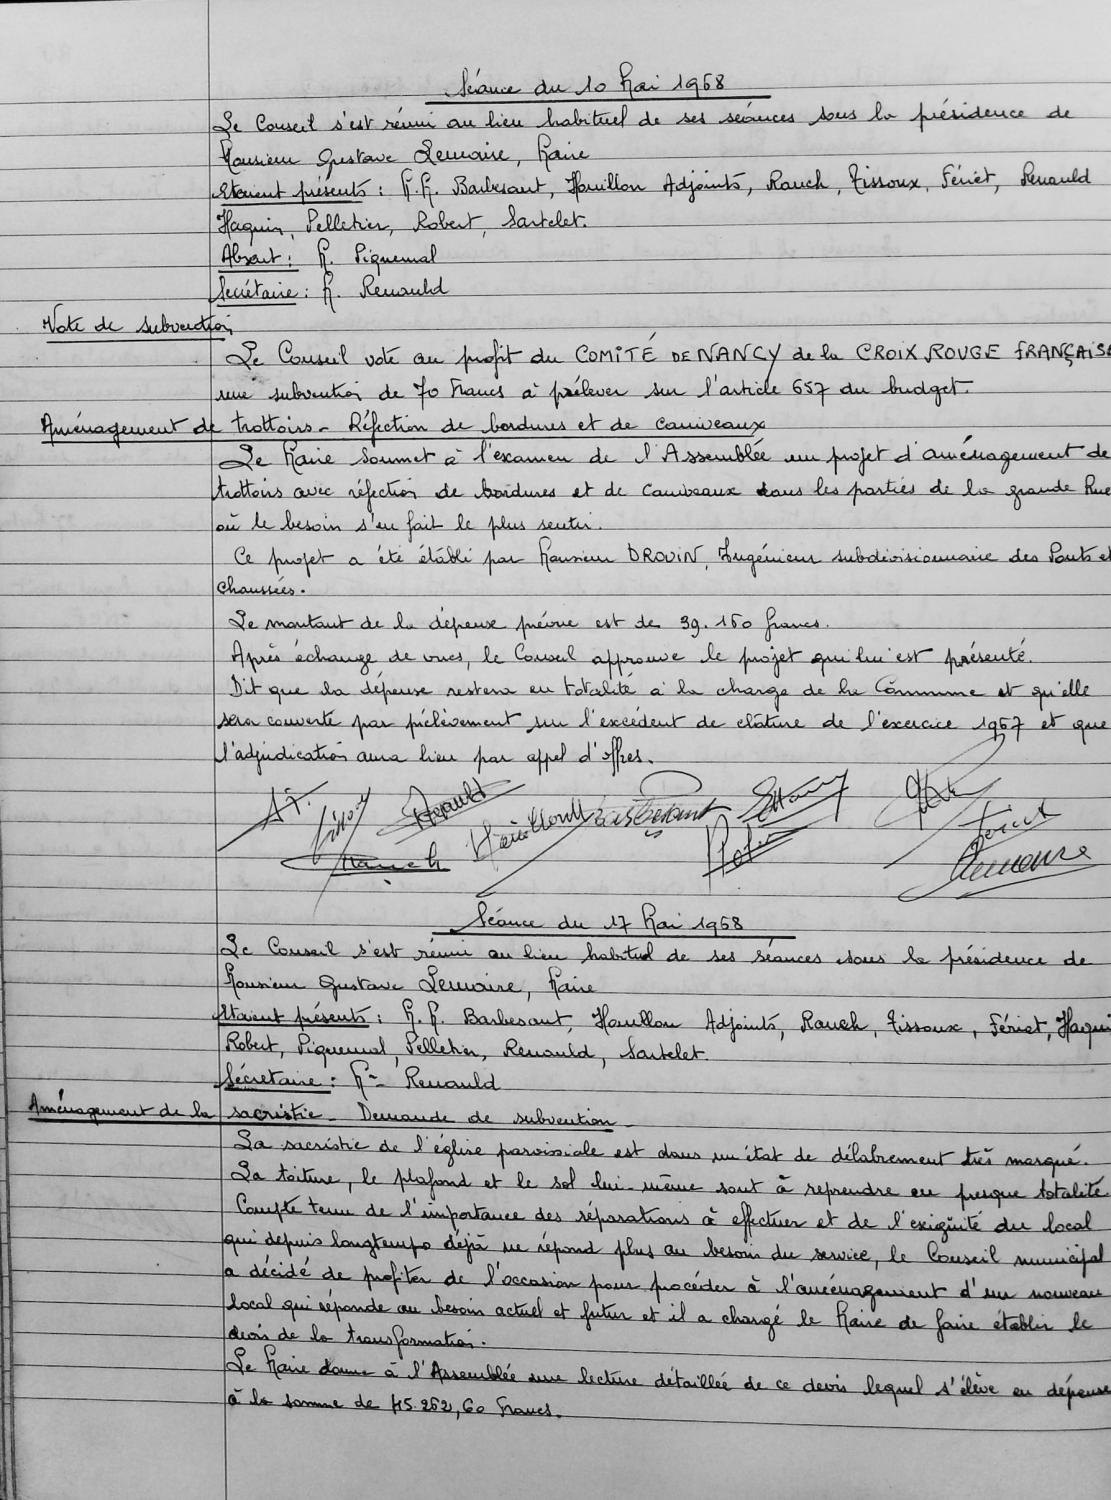 Séance du 10 Mai 1968
Le Conseil s'est réuni au lieu habituel de ses séances sous la présidence de
Monsieur Gustave Lemoine, Maire
Etaient présents : M.M. Barbesant, Houillon Adjoints, Rauch, Tissoux, Fériet, Renauld
Haquin, Pelletier, Robert, Sartelet.
Absent : M. Piquemal
Secrétaire : M. Renauld
Vote de subvention
Le Conseil vote au profit du COMITÉ DE NANCY de la CROIX ROUGE FRANÇAISE
une subvention de 70 Francs à prélever sur l'article 657 du budget.
Aménagement de trottoirs - Réfection de bordures et de caniveaux
Le Maire soumet à l'examen de l'Assemblée un projet d'aménagement de
trottoirs avec réfection de bordures et de caniveaux dans les parties de la grande Rue
où le besoin s'en fait le plus sentir.
Ce projet a été établi par Monsieur DROUIN, Ingénieur subdivisionnaire des Ponts et
chaussées.
Le montant de la dépense prévue est de 39.150 francs.
Après échange de vues, le Conseil approuve le projet qui lui est présenté.
Dit que la dépense restera en totalité à la charge de la Commune et qu'elle
sera couverte par prélèvement sur l'excédent de clôture de l'exercice 1967 et que
l'adjudication aura lieu par appel d'offres.
Séance du 17 Mai 1968
Le Conseil s'est réuni au lieu habituel de ses séances sous la présidence de
Monsieur Gustave Lemoine, Maire
Etaient présents : M.M. Barbesant, Houillon Adjoints, Rauch, Tissoux, Fériet, Haquin
Robert, Piquemal, Pelletier, Renauld, Sartelet.
Sécretaire : Mr Renauld
Aménagement de la sacristie - Demande de subvention -
La sacristie de l'église paroissiale est dans un état de délabrement très marqué.
La toiture, le plafond et le sol lui-même sont à reprendre en presque totalité
Compte tenu de l'importance des réparations à effectuer et de l'exigüité du local
qui depuis longtemps déjà ne répond plus au besoin du service, le Conseil municipal
a décidé de profiter de l'occasion pour procéder à l'aménagement d'un nouveau
local qui réponde au besoin actuel et futur et il a chargé le Maire de faire établir le
devis de la transformation.
Le Maire donne à l'Assemblée une lecture détaillée de ce devis lequel s'élève en dépense
à la somme de 45.262,60 Francs.